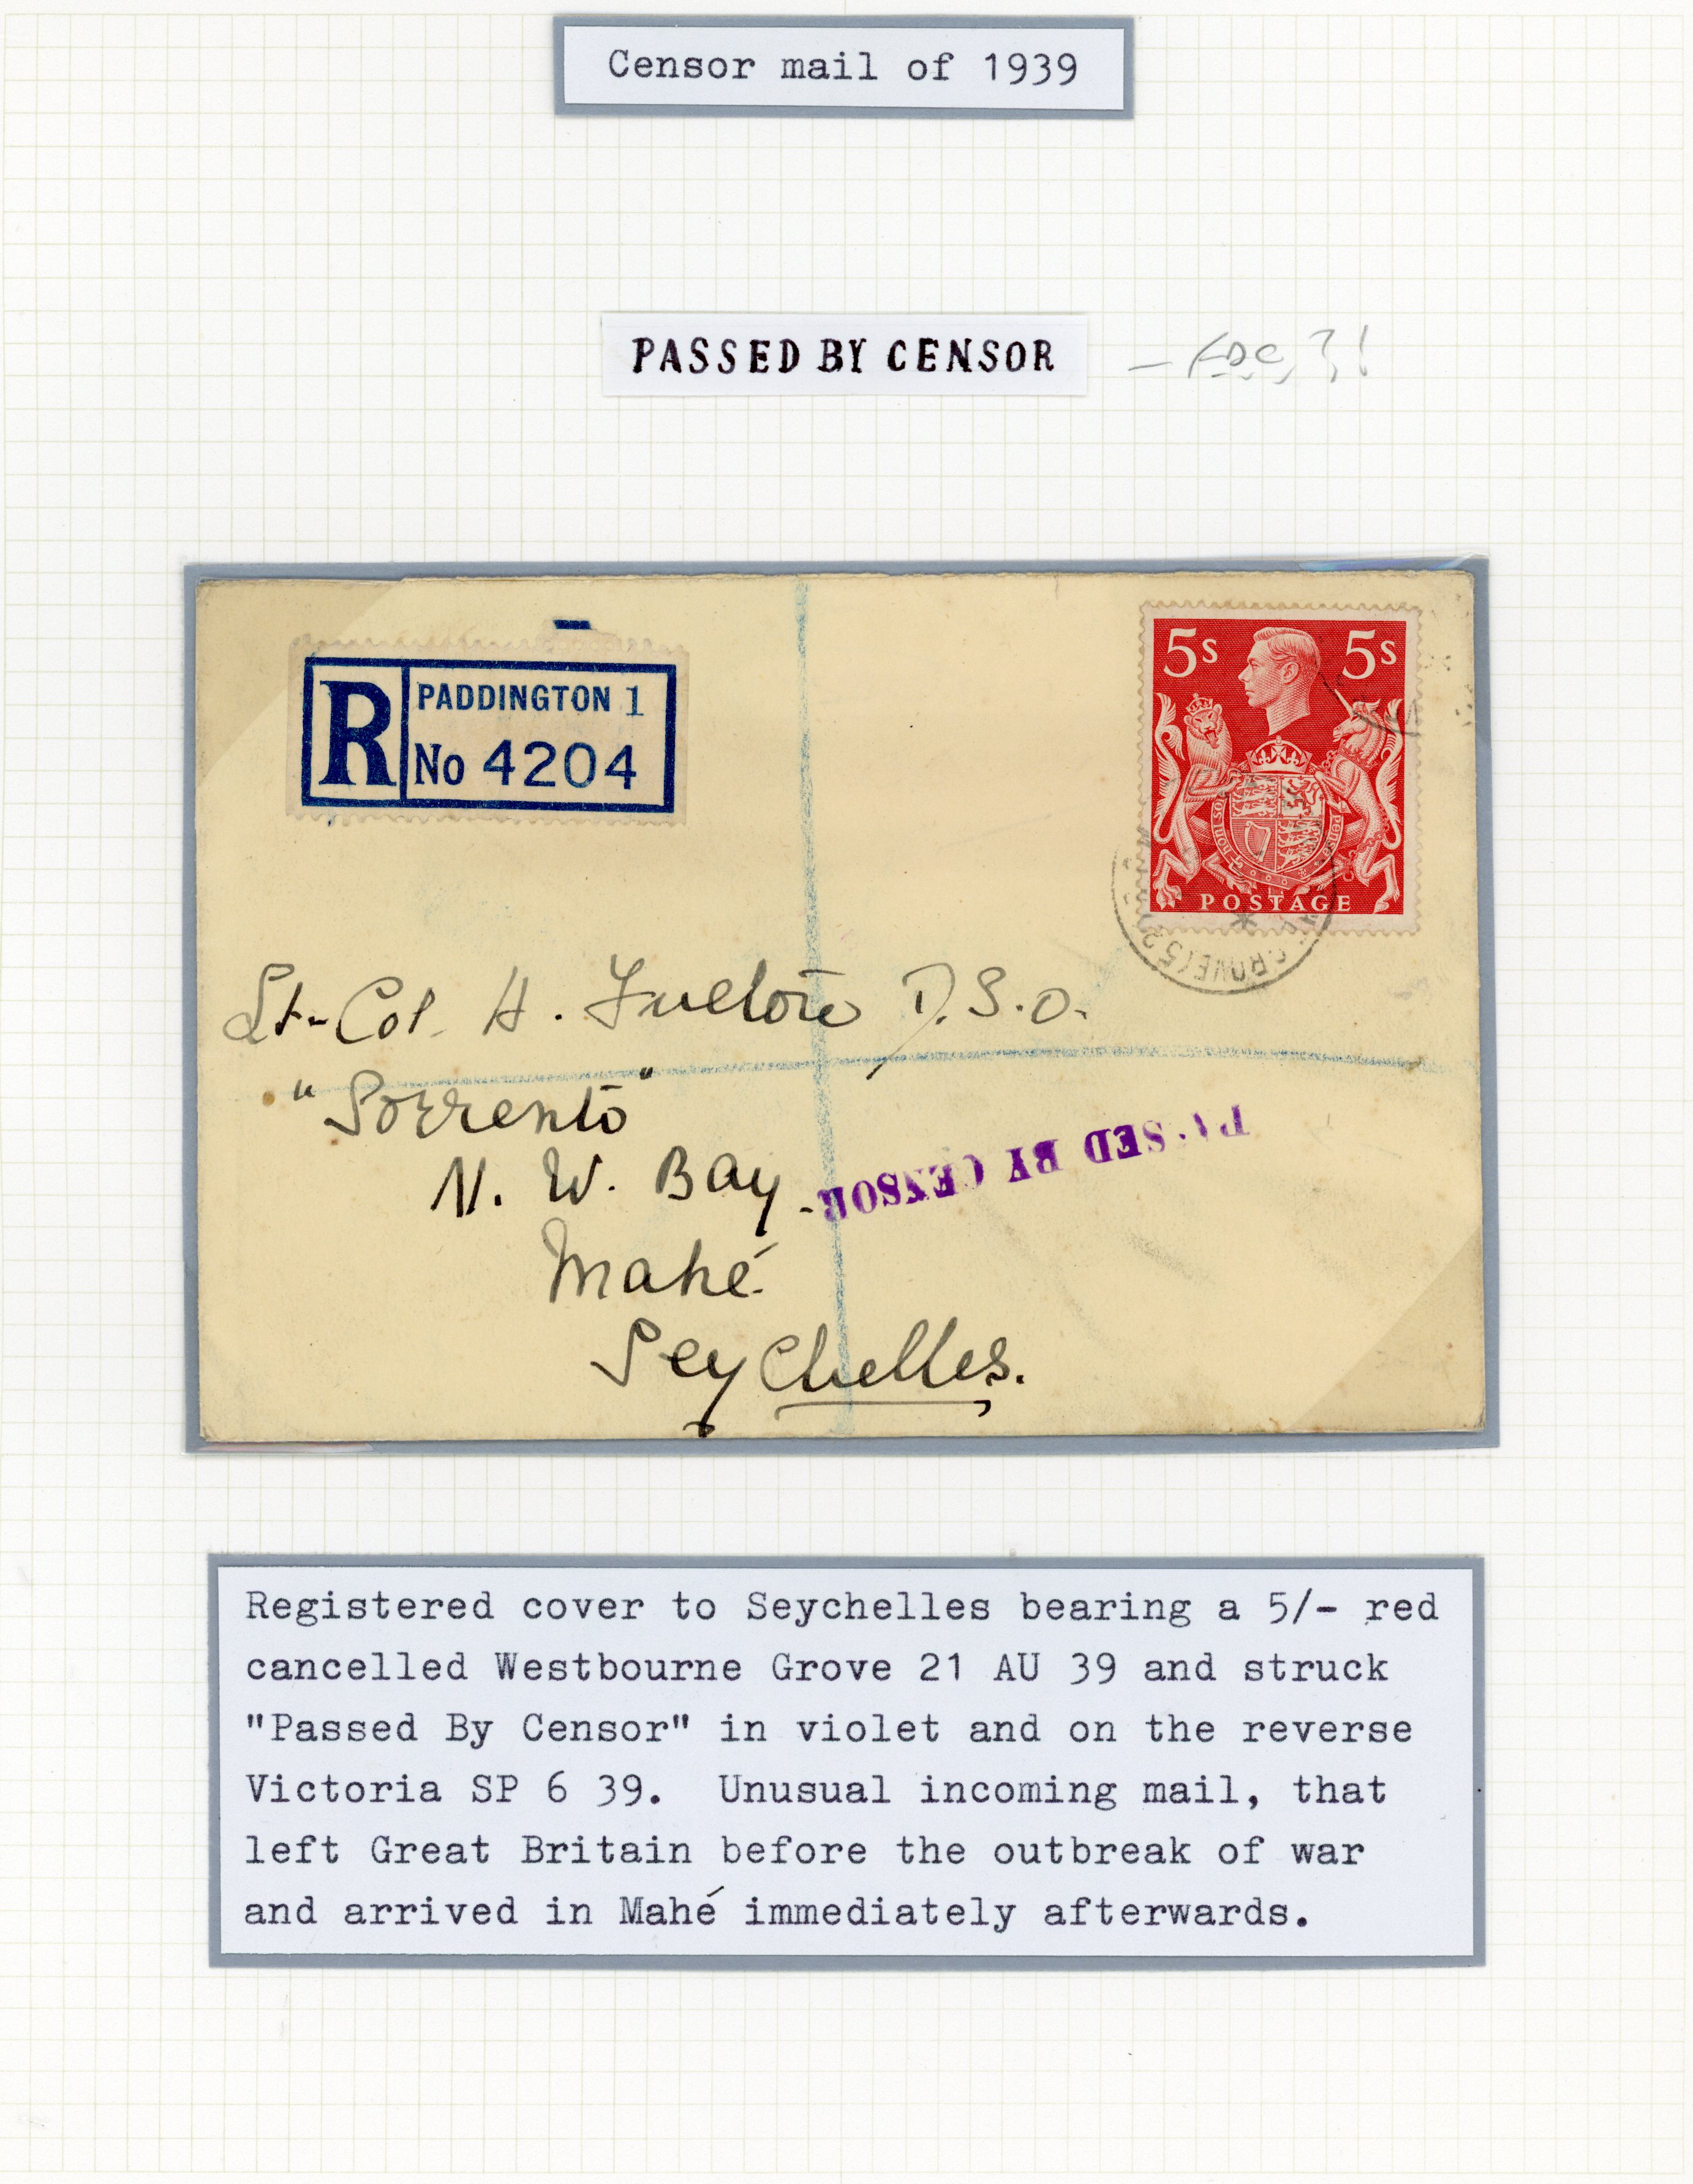 Censor mail of 1939
PASSED BY CENSOR
— FDC ?!
R
PADDINGTON 1
No 4204
5s 5s
POSTAGE
GROVE (52
Lt-Col. H. D.S.O.
"Sorrento"
N. W. Bay
PASSED BY CENSOR
Mahé
Seychelles.
Registered cover to Seychelles bearing a 5/- red
cancelled Westbourne Grove 21 AU 39 and struck
"Passed By Censor" in violet and on the reverse
Victoria SP 6 39. Unusual incoming mail, that
left Great Britain before the outbreak of war
and arrived in Mahé immediately afterwards.